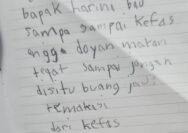 bapak harini bau
sampa sampai kefas
angga doyan makan
tegat sampai jangan
disitu buang jadi
temakasi
dari kefas